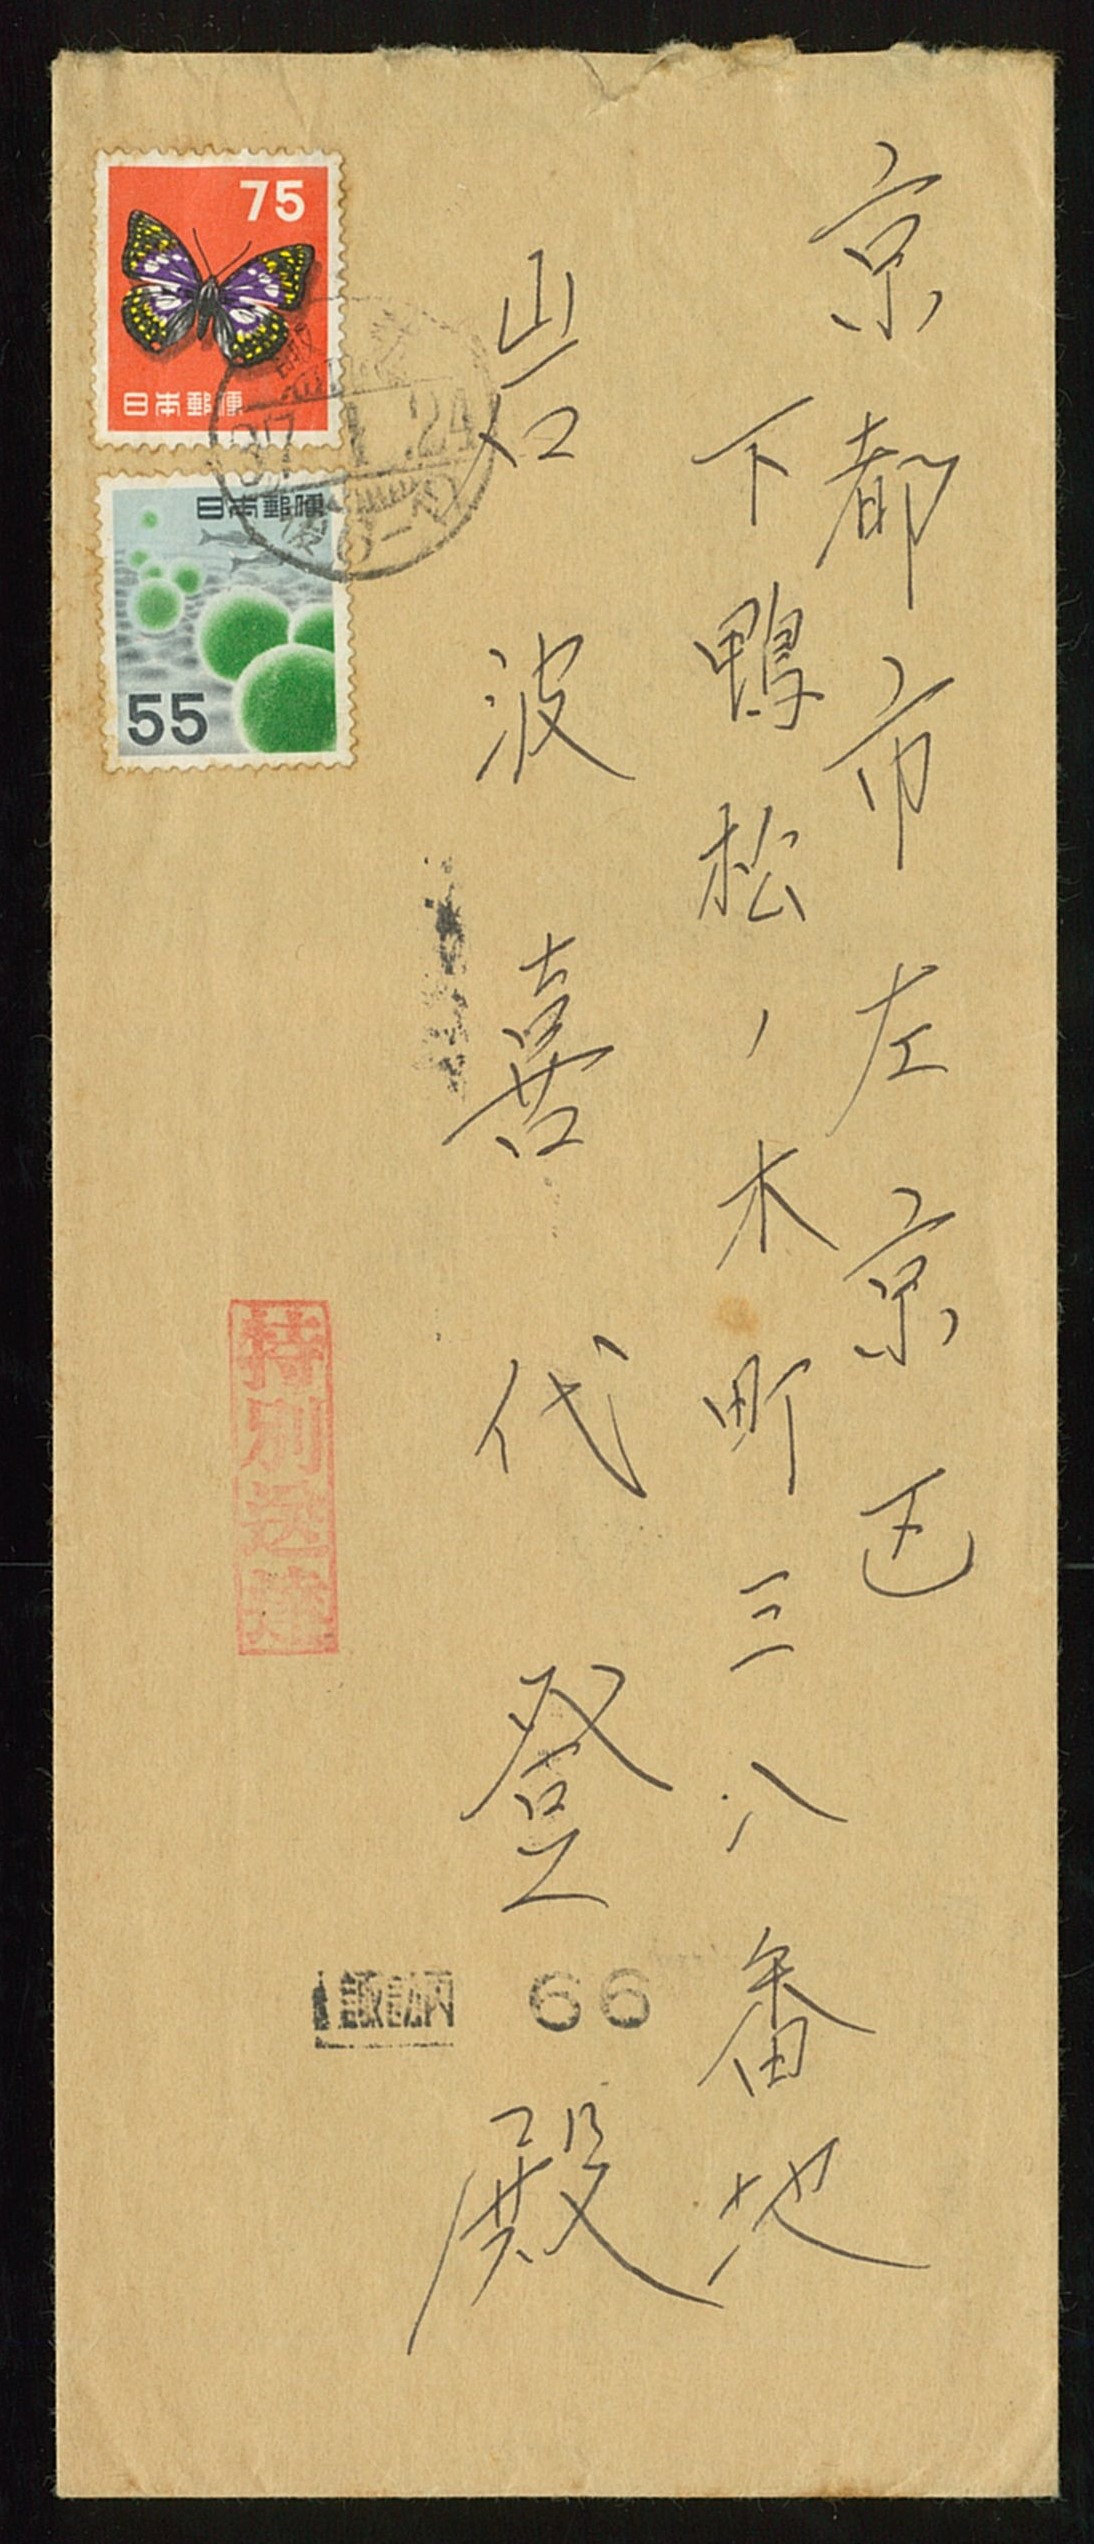 京都市左京区
下鴨松ノ木町三八番地
岩波喜代登殿
75
日本郵便
37. .24
日本郵便
55
特別送達
諏訪内
66